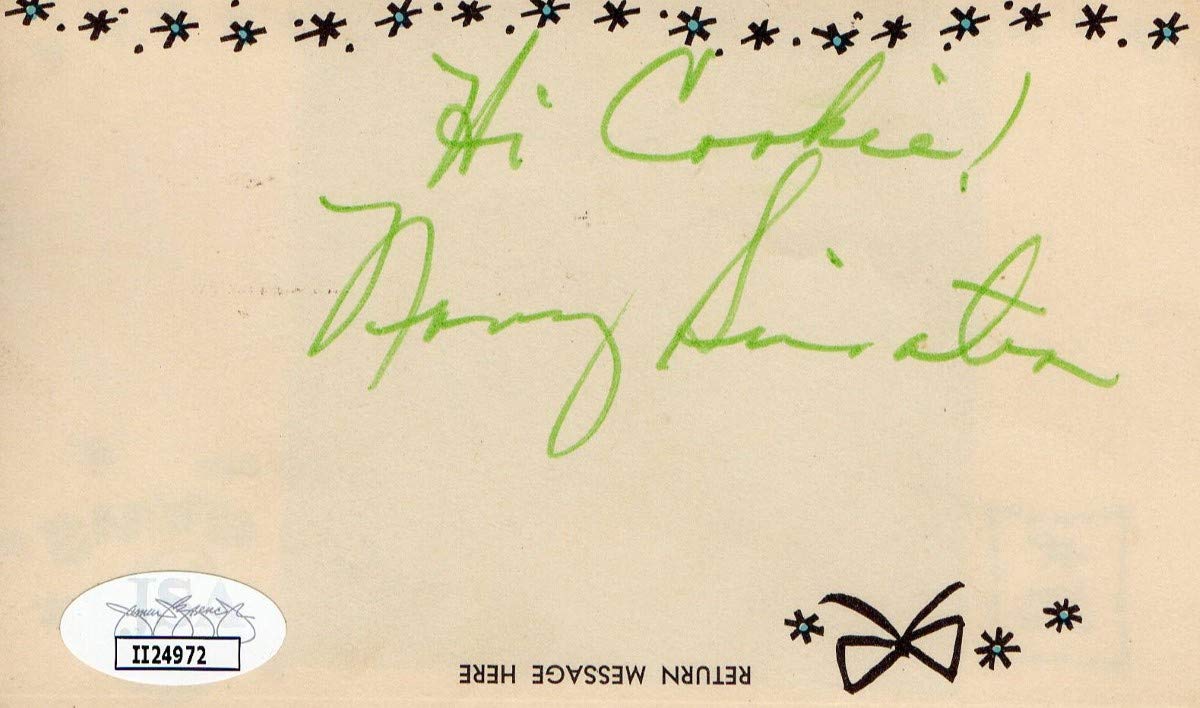 Hi Cookie!
Nancy Sinatra
James Spence
JSA
II24972
RETURN MESSAGE HERE